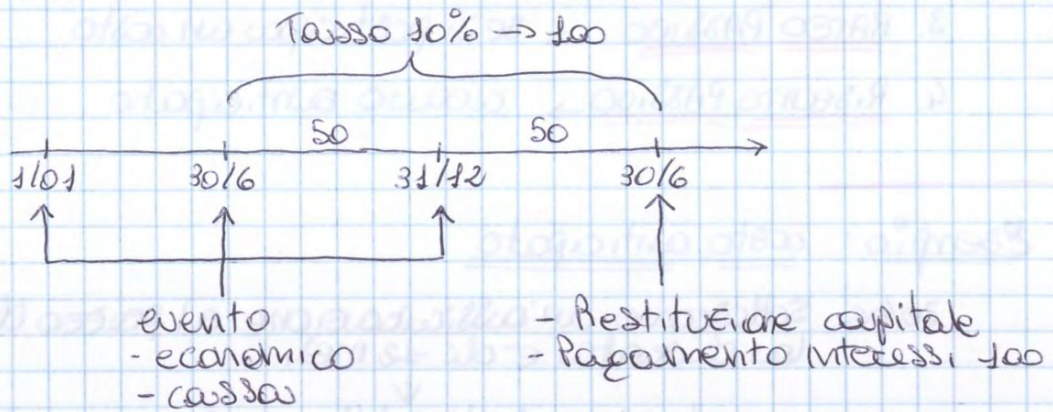 Tasso 10% -> 100
50 50
1/01 30/6 31/12 30/6
evento
- economico
- cassa
- Restituzione capitale
- Pagamento interessi 100